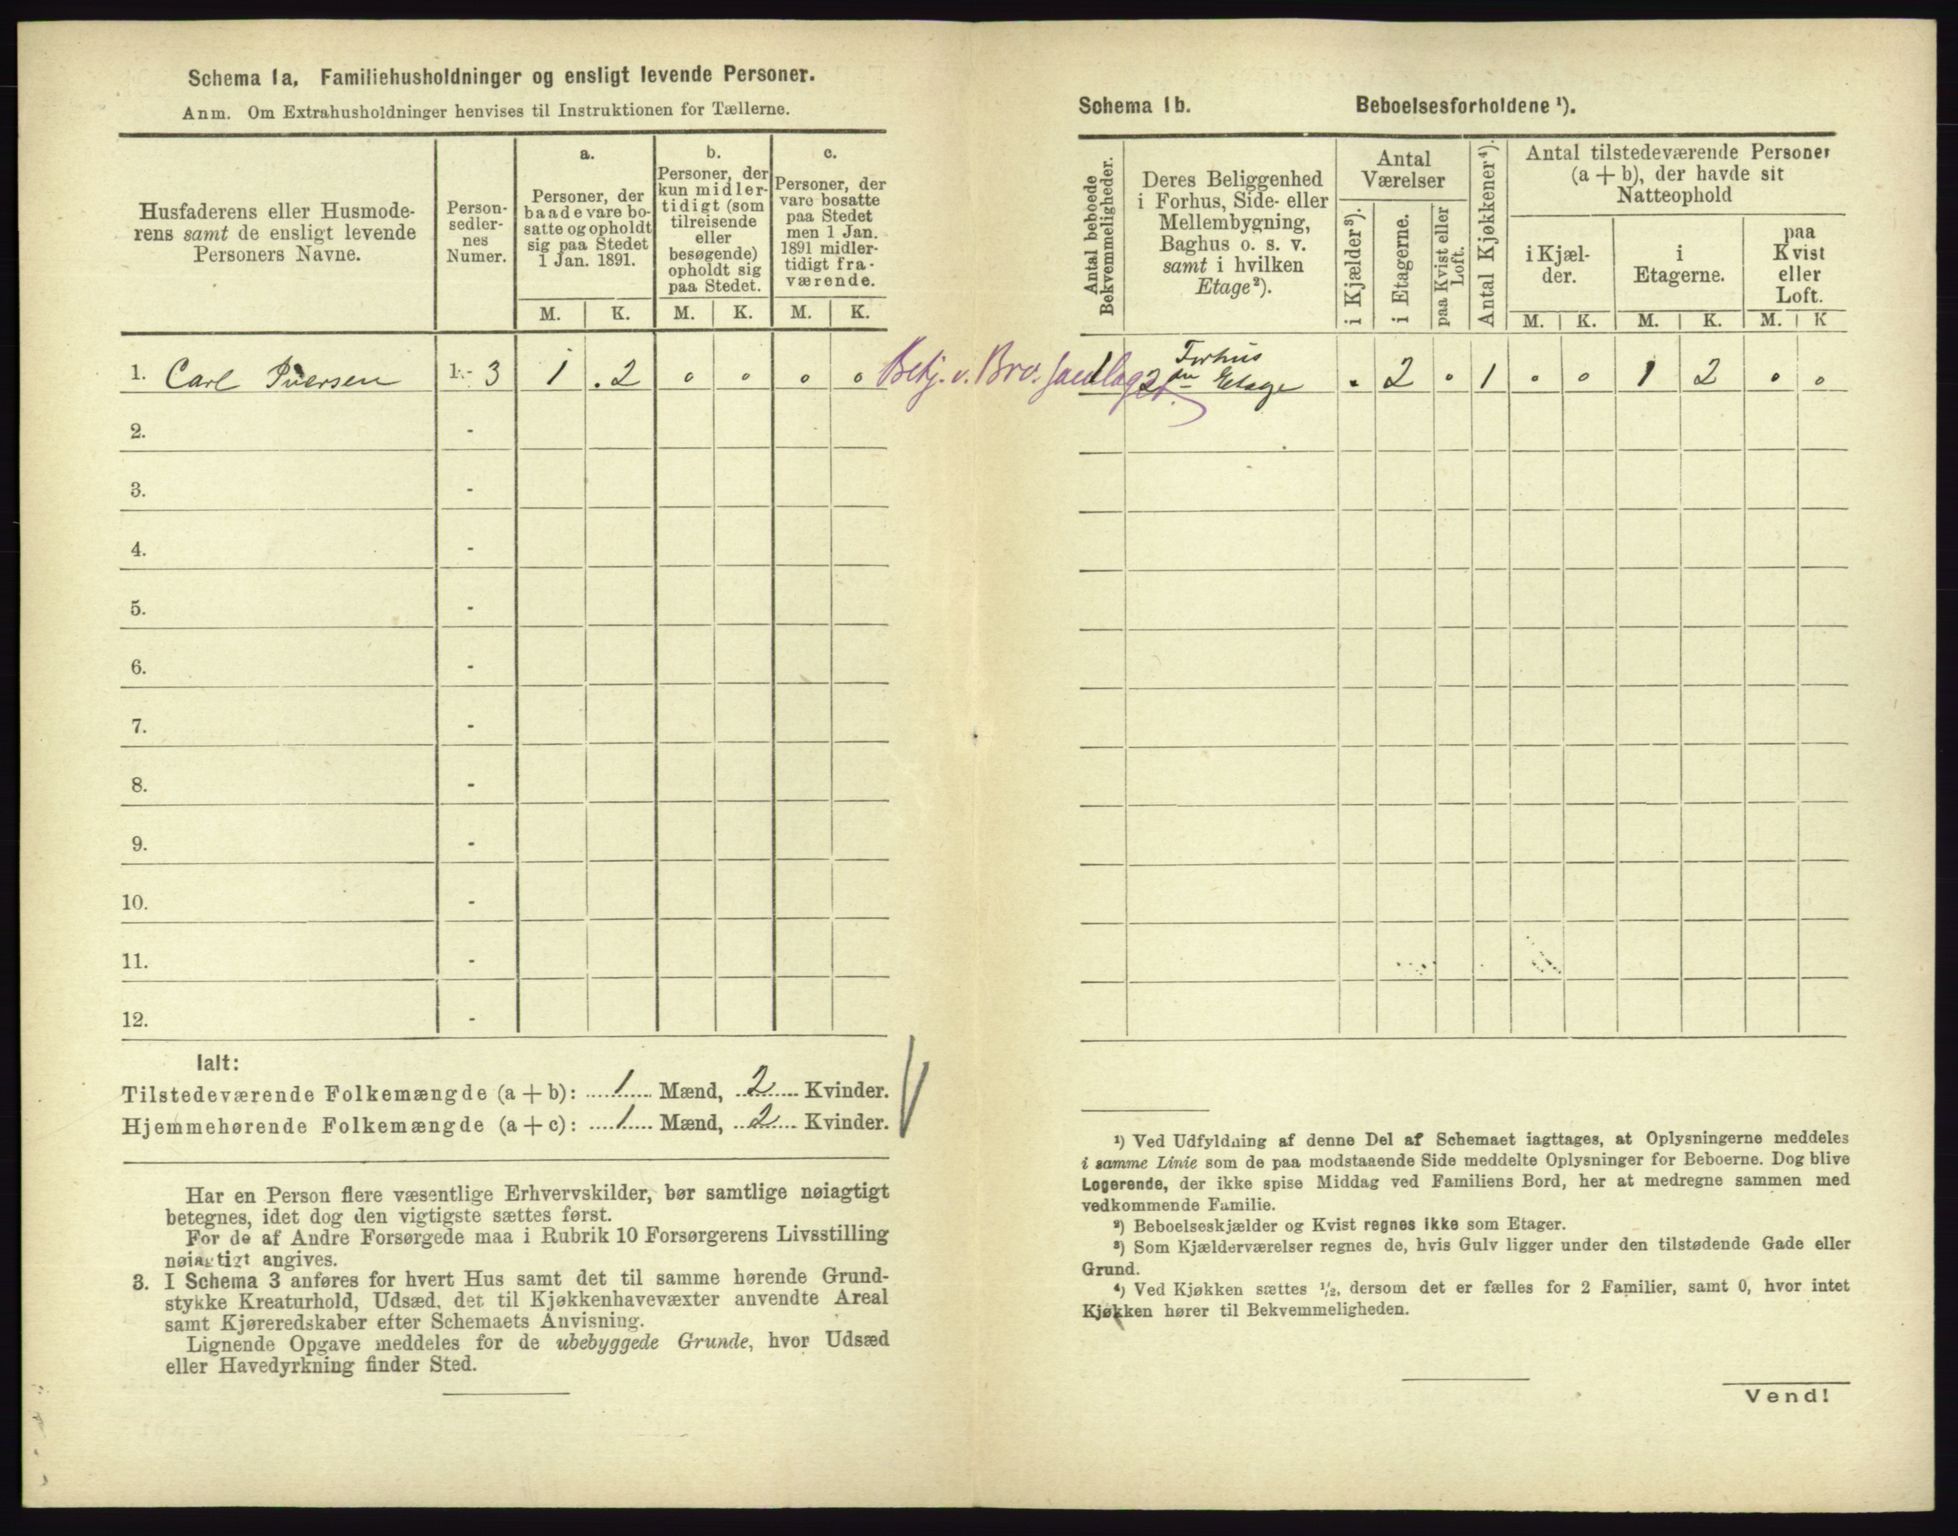 Schema 1a. Familiehusholdninger og ensligt levende Personer.
Anm. Om Extrahusholdninger henvises til Instruktionen for Tællerne.
Husfaderens eller Husmode-
rens samt de ensligt levende
Personers Navne.
Person-
sedler-
nes
Numer.
a.
Personer, der
baade vare bo-
satte og opholdt
sig paa Stedet
1 Jan. 1891.
b.
Personer, der
kun midler-
tidigt (som
tilreisende
eller
besøgende)
opholdt sig
paa Stedet.
c.
Personer, der
vare bosatte
paa Stedet
men 1 Jan.
1891 midler-
tidigt fra-
værende.
M. K. M. K. M. K.
1. Carl Iversen 1 - 3 1 . 2 0 0 0 0
2. -
3. -
4. -
5. -
6. -
7. -
8. -
9. -
10. -
11. -
12. -
Ialt:
Tilstedeværende Folkemængde (a + b): 1 Mænd, 2 Kvinder.
Hjemmehørende Folkemængde (a + c): 1 Mænd, 2 Kvinder.
Har en Person flere væsentlige Erhvervskilder, bør samtlige nøiagtigt
betegnes, idet dog den vigtigste sættes først.
For de af Andre Forsørgede maa i Rubrik 10 Forsørgerens Livsstilling
nøiagtigt angives.
3. I Schema 3 anføres for hvert Hus samt det til samme hørende Grund-
stykke Kreaturhold, Udsæd, det til Kjøkkenhavevæxter anvendte Areal
samt Kjøreredskaber efter Schemaets Anvisning.
Lignende Opgave meddeles for de ubebyggede Grunde, hvor Udsæd
eller Havedyrkning finder Sted.
Schema 1b. Beboelsesforholdene ¹).
Antal beboede
Bekvemmeligheder.
Deres Beliggenhed
i Forhus, Side- eller
Mellembygning,
Baghus o. s. v.
samt i hvilken
Etage²).
Antal
Værelser
i Kjælder³).
i Etagerne.
paa Kvist eller
Loft.
Antal Kjøkkener⁴).
Antal tilstedeværende Personer
(a + b), der havde sit
Natteophold
i Kjæl-
der.
i
Etagerne.
paa
Kvist
eller
Loft.
M. K. M. K. M. K
Bekj. v. Bro.
1 Forhus
2den Etage . 2 . 1 0 0 1 2 0 0
¹) Ved Udfyldning af denne Del af Schemaet iagttages, at Oplysningerne meddeles
i samme Linie som de paa modstaaende Side meddelte Oplysninger for Beboerne. Dog blive
Logerende, der ikke spise Middag ved Familiens Bord, her at medregne sammen med
vedkommende Familie.
²) Beboelseskjælder og Kvist regnes ikke som Etager.
³) Som Kjælderværelser regnes de, hvis Gulv ligger under den tilstødende Gade eller
Grund.
⁴) Ved Kjøkken sættes ½, dersom det er fælles for 2 Familier, samt 0, hvor intet
Kjøkken hører til Bekvemmeligheden.
Vend!